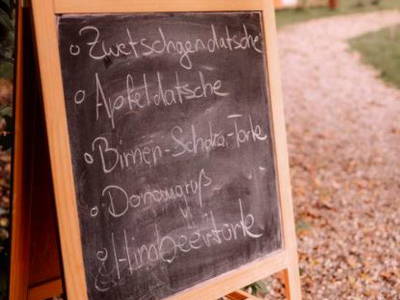 Zwetschgendatsche
Apfeldatsche
Birnen-Schoko-Torte
Donaugruß
Himbeertorte